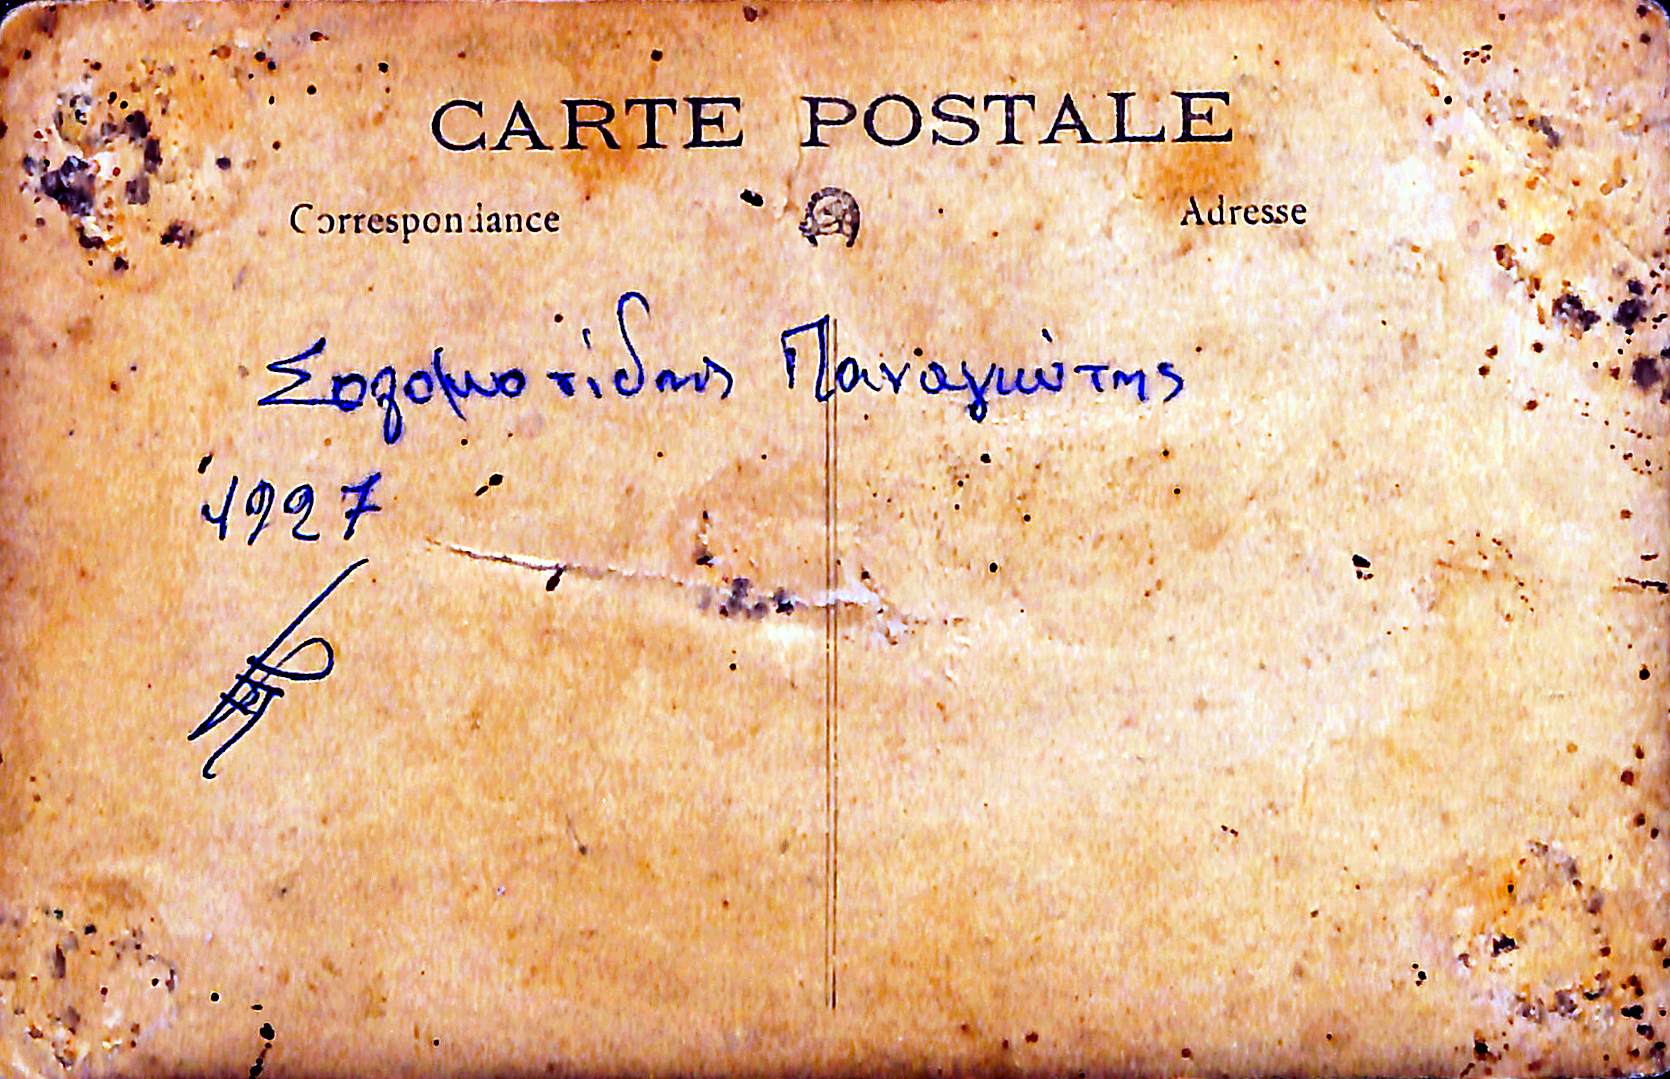 CARTE POSTALE
Correspondance Adresse
Παναγιώτης
1927